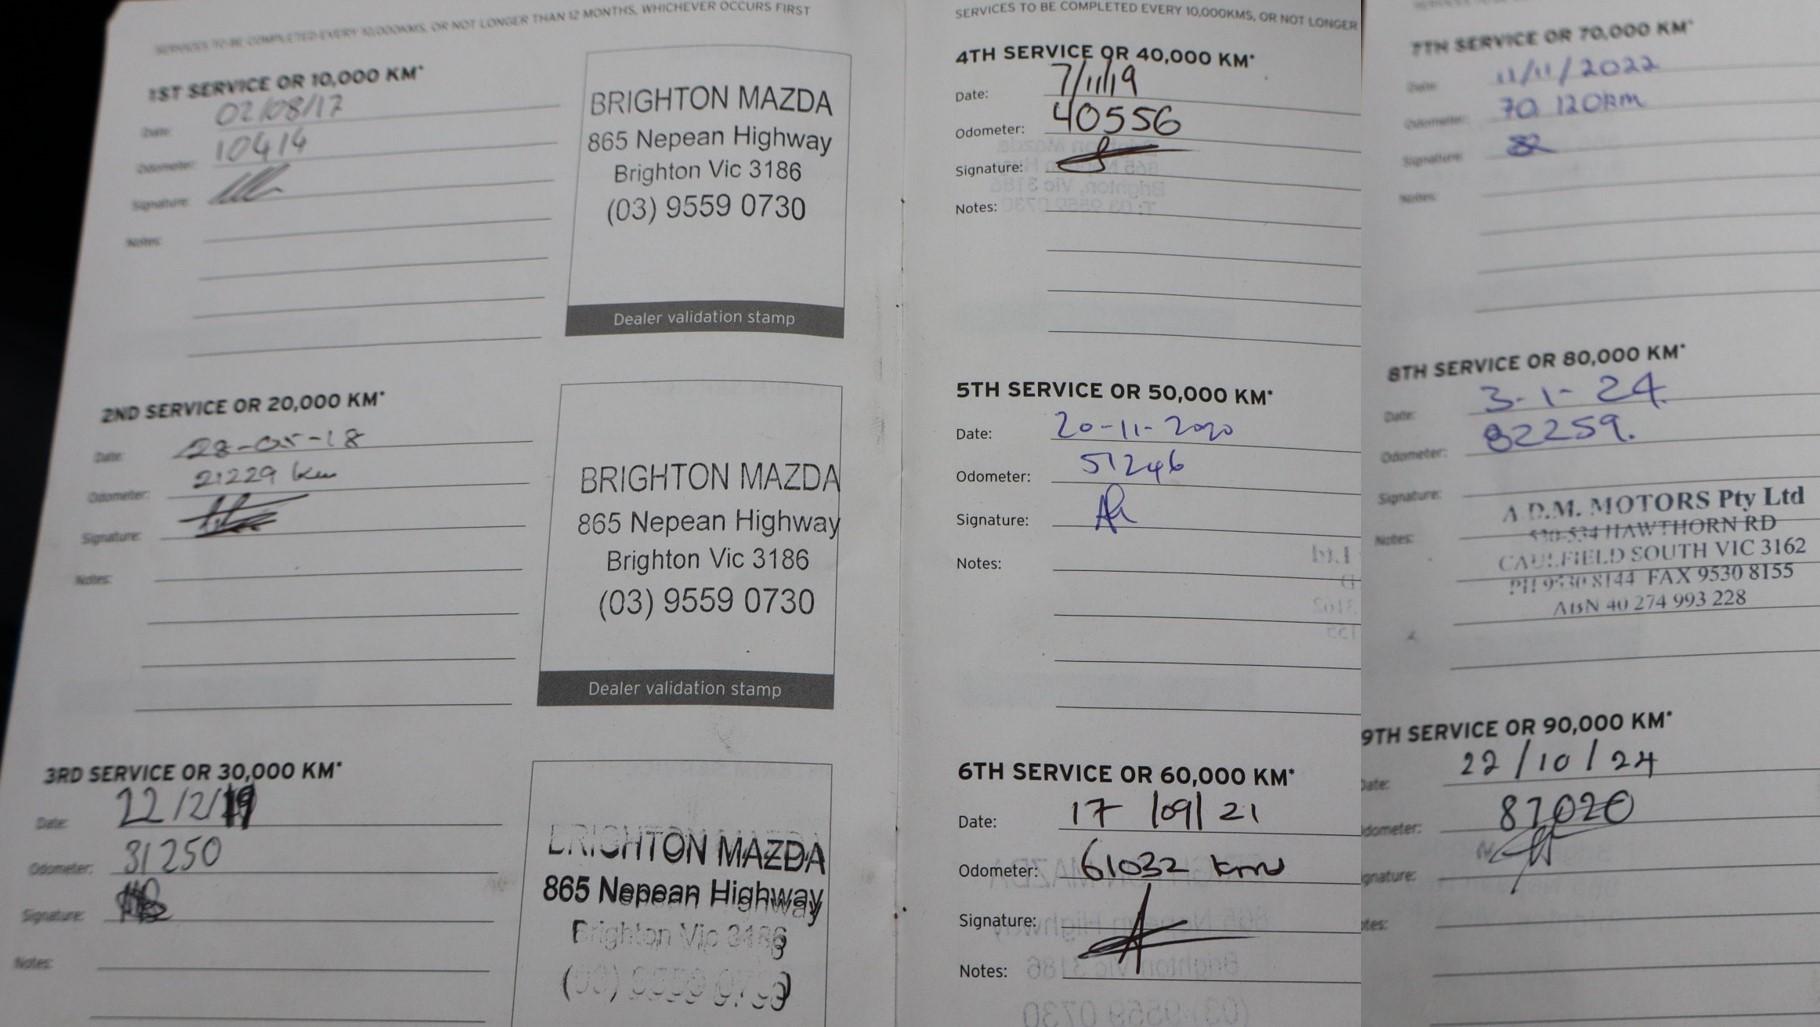 SERVICES TO BE COMPLETED EVERY 10,000KMS, OR NOT LONGER THAN 12 MONTHS, WHICHEVER OCCURS FIRST
1ST SERVICE OR 10,000 KM*
Date: 02/08/17
Odometer: 10414
Signature:
Notes:
BRIGHTON MAZDA
865 Nepean Highway
Brighton Vic 3186
(03) 9559 0730
Dealer validation stamp
2ND SERVICE OR 20,000 KM*
Date: 28-05-18
Odometer: 21229 km
Signature:
Notes:
BRIGHTON MAZDA
865 Nepean Highway
Brighton Vic 3186
(03) 9559 0730
Dealer validation stamp
3RD SERVICE OR 30,000 KM*
Date: 22/2/19
Odometer: 31250
Signature:
Notes:
BRIGHTON MAZDA
865 Nepean Highway
Brighton Vic 3186
SERVICES TO BE COMPLETED EVERY 10,000KMS, OR NOT LONGER
4TH SERVICE OR 40,000 KM*
Date: 7/11/19
Odometer: 40556
Signature:
Notes:
5TH SERVICE OR 50,000 KM*
Date: 20-11-2020
Odometer: 51246
Signature:
Notes:
6TH SERVICE OR 60,000 KM*
Date: 17/09/21
Odometer: 61032 km
Signature:
Notes:
7TH SERVICE OR 70,000 KM*
Date: 11/11/2022
Odometer: 70 120km
Signature:
Notes:
8TH SERVICE OR 80,000 KM*
Date: 3-1-24.
Odometer: 82259.
Signature:
Notes:
A.D.M. MOTORS Pty Ltd
530-534 HAWTHORN RD
CAULFIELD SOUTH VIC 3162
PH 9530 8144 FAX 9530 8155
ABN 40 274 993 228
9TH SERVICE OR 90,000 KM*
Date: 22/10/24
dometer: 87020
gnature:
tes: